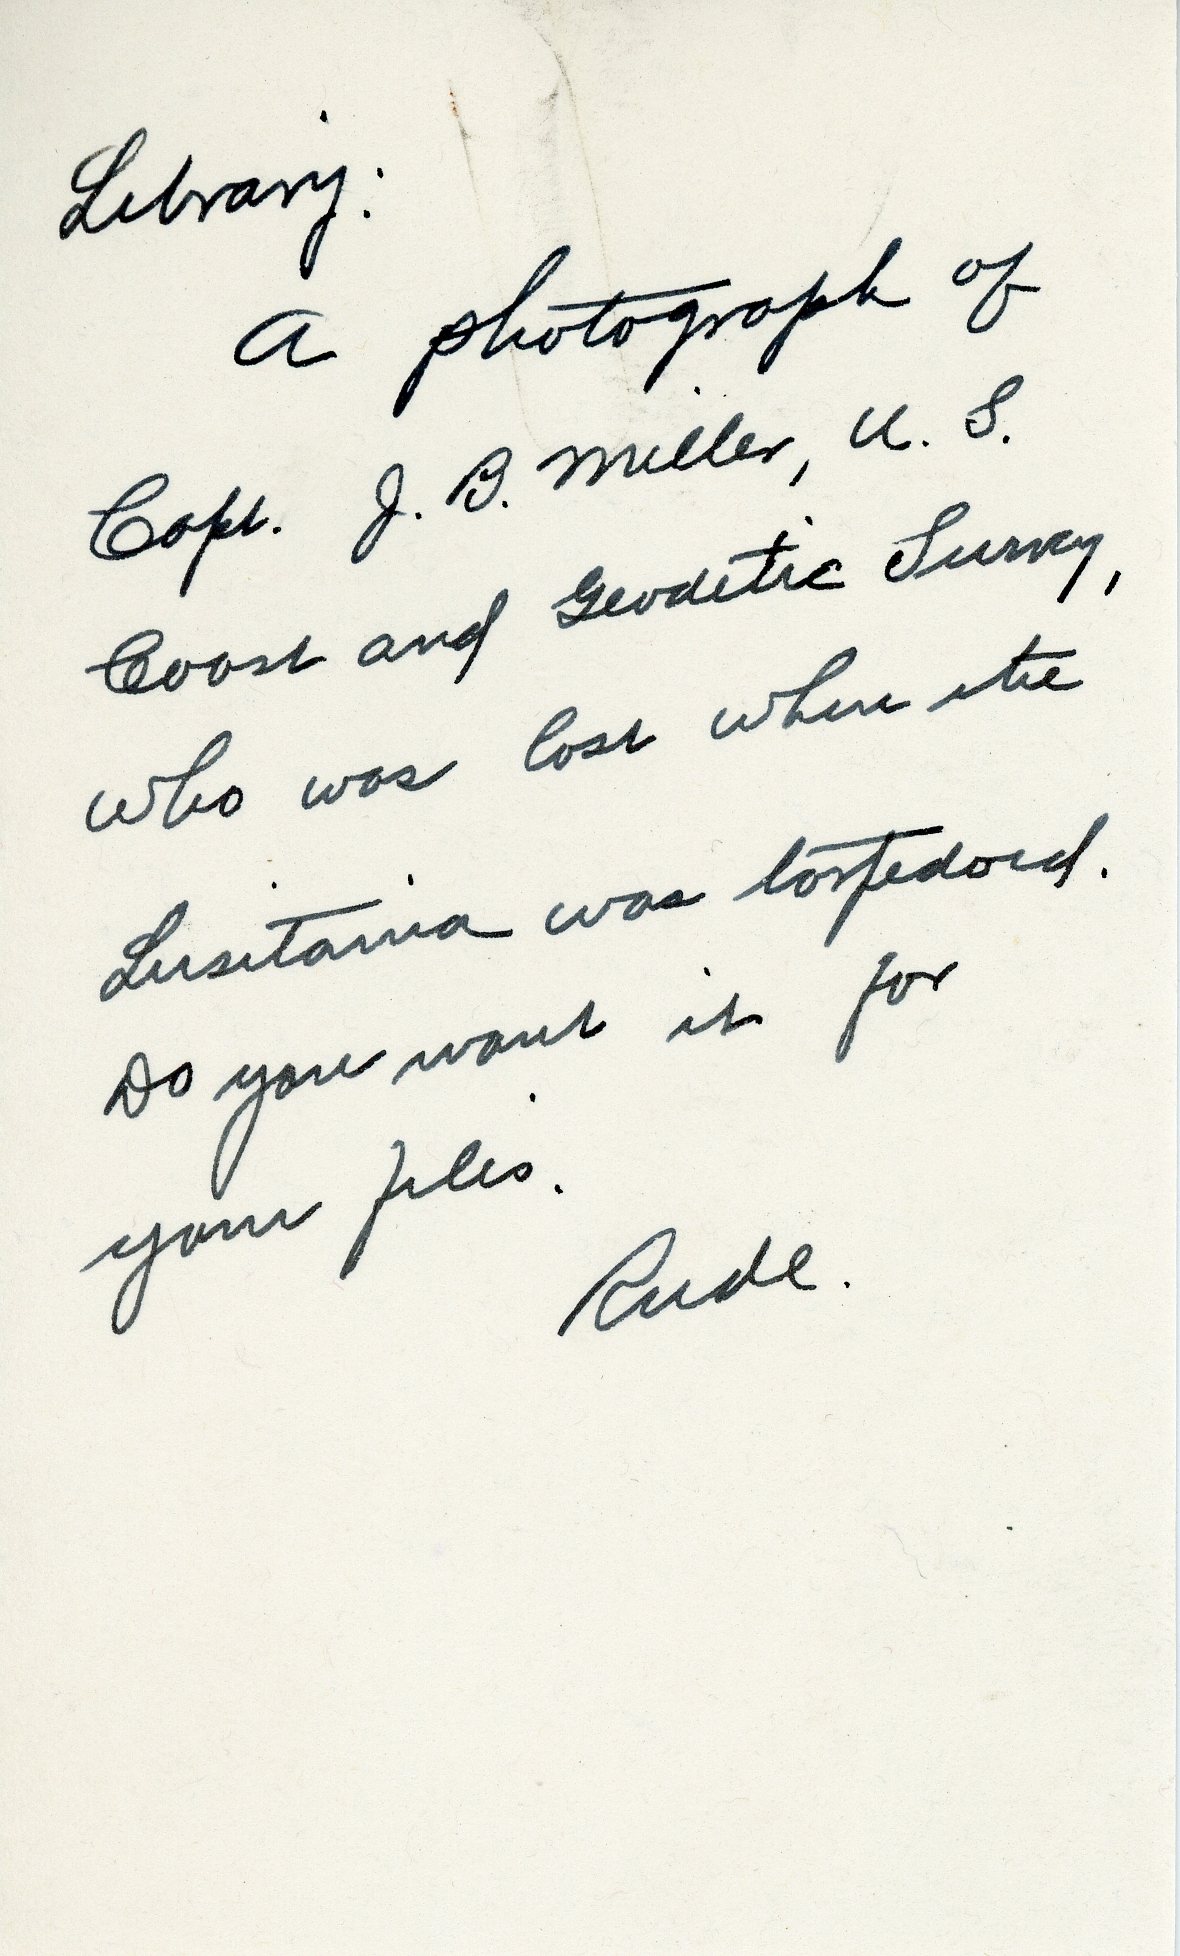 Library:
A photograph of
Capt. J. B. Miller, U. S.
Coast and Geodetic Survey,
who was lost when the
Lusitania was torpedoed.
Do you want it for
your files.
Rude.